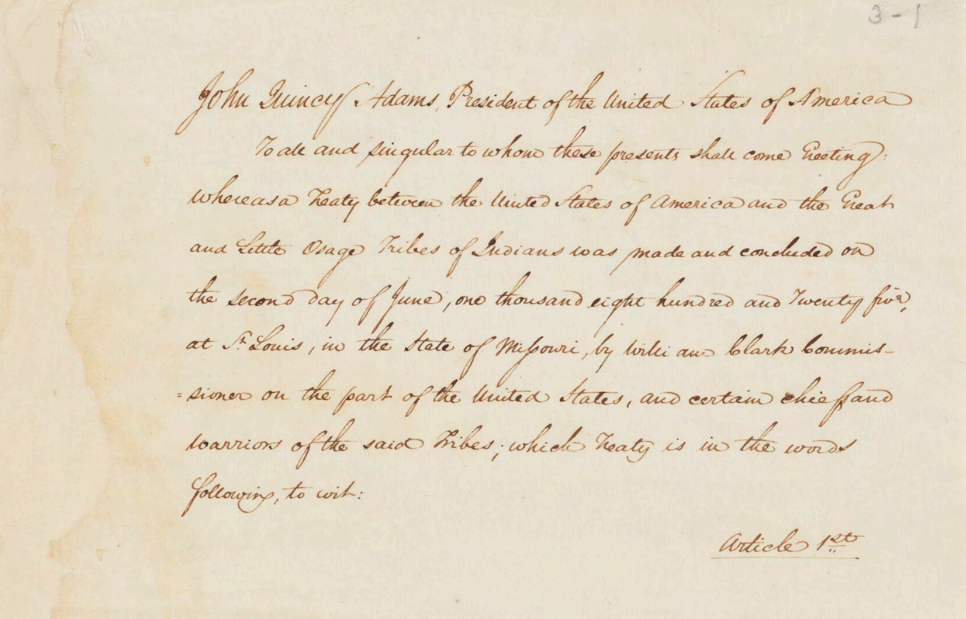 3-1
John Quincy Adams, President of the United States of America
To all and singular to whom these presents shall come Greeting:
whereas a Treaty between the United States of America and the Great
and Little Osage Tribes of Indians was made and concluded on
the second day of June, one thousand eight hundred and Twenty five,
at St. Louis, in the State of Missouri, by William Clark Commis-
=sioner on the part of the United States, and certain chiefs and
warriors of the said Tribes; which Treaty is in the words
following, to wit:
Article 1st